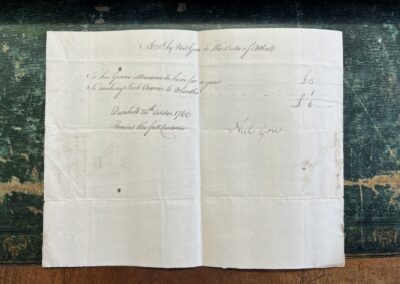 Acct. by Neil Gow to the Duke of Atholl
To his Graces allowance to him for a year £ 5
To teaching 4 Months 1
£ 6
Dunkeld 24th October 1760
Receive the full
Neil Gow